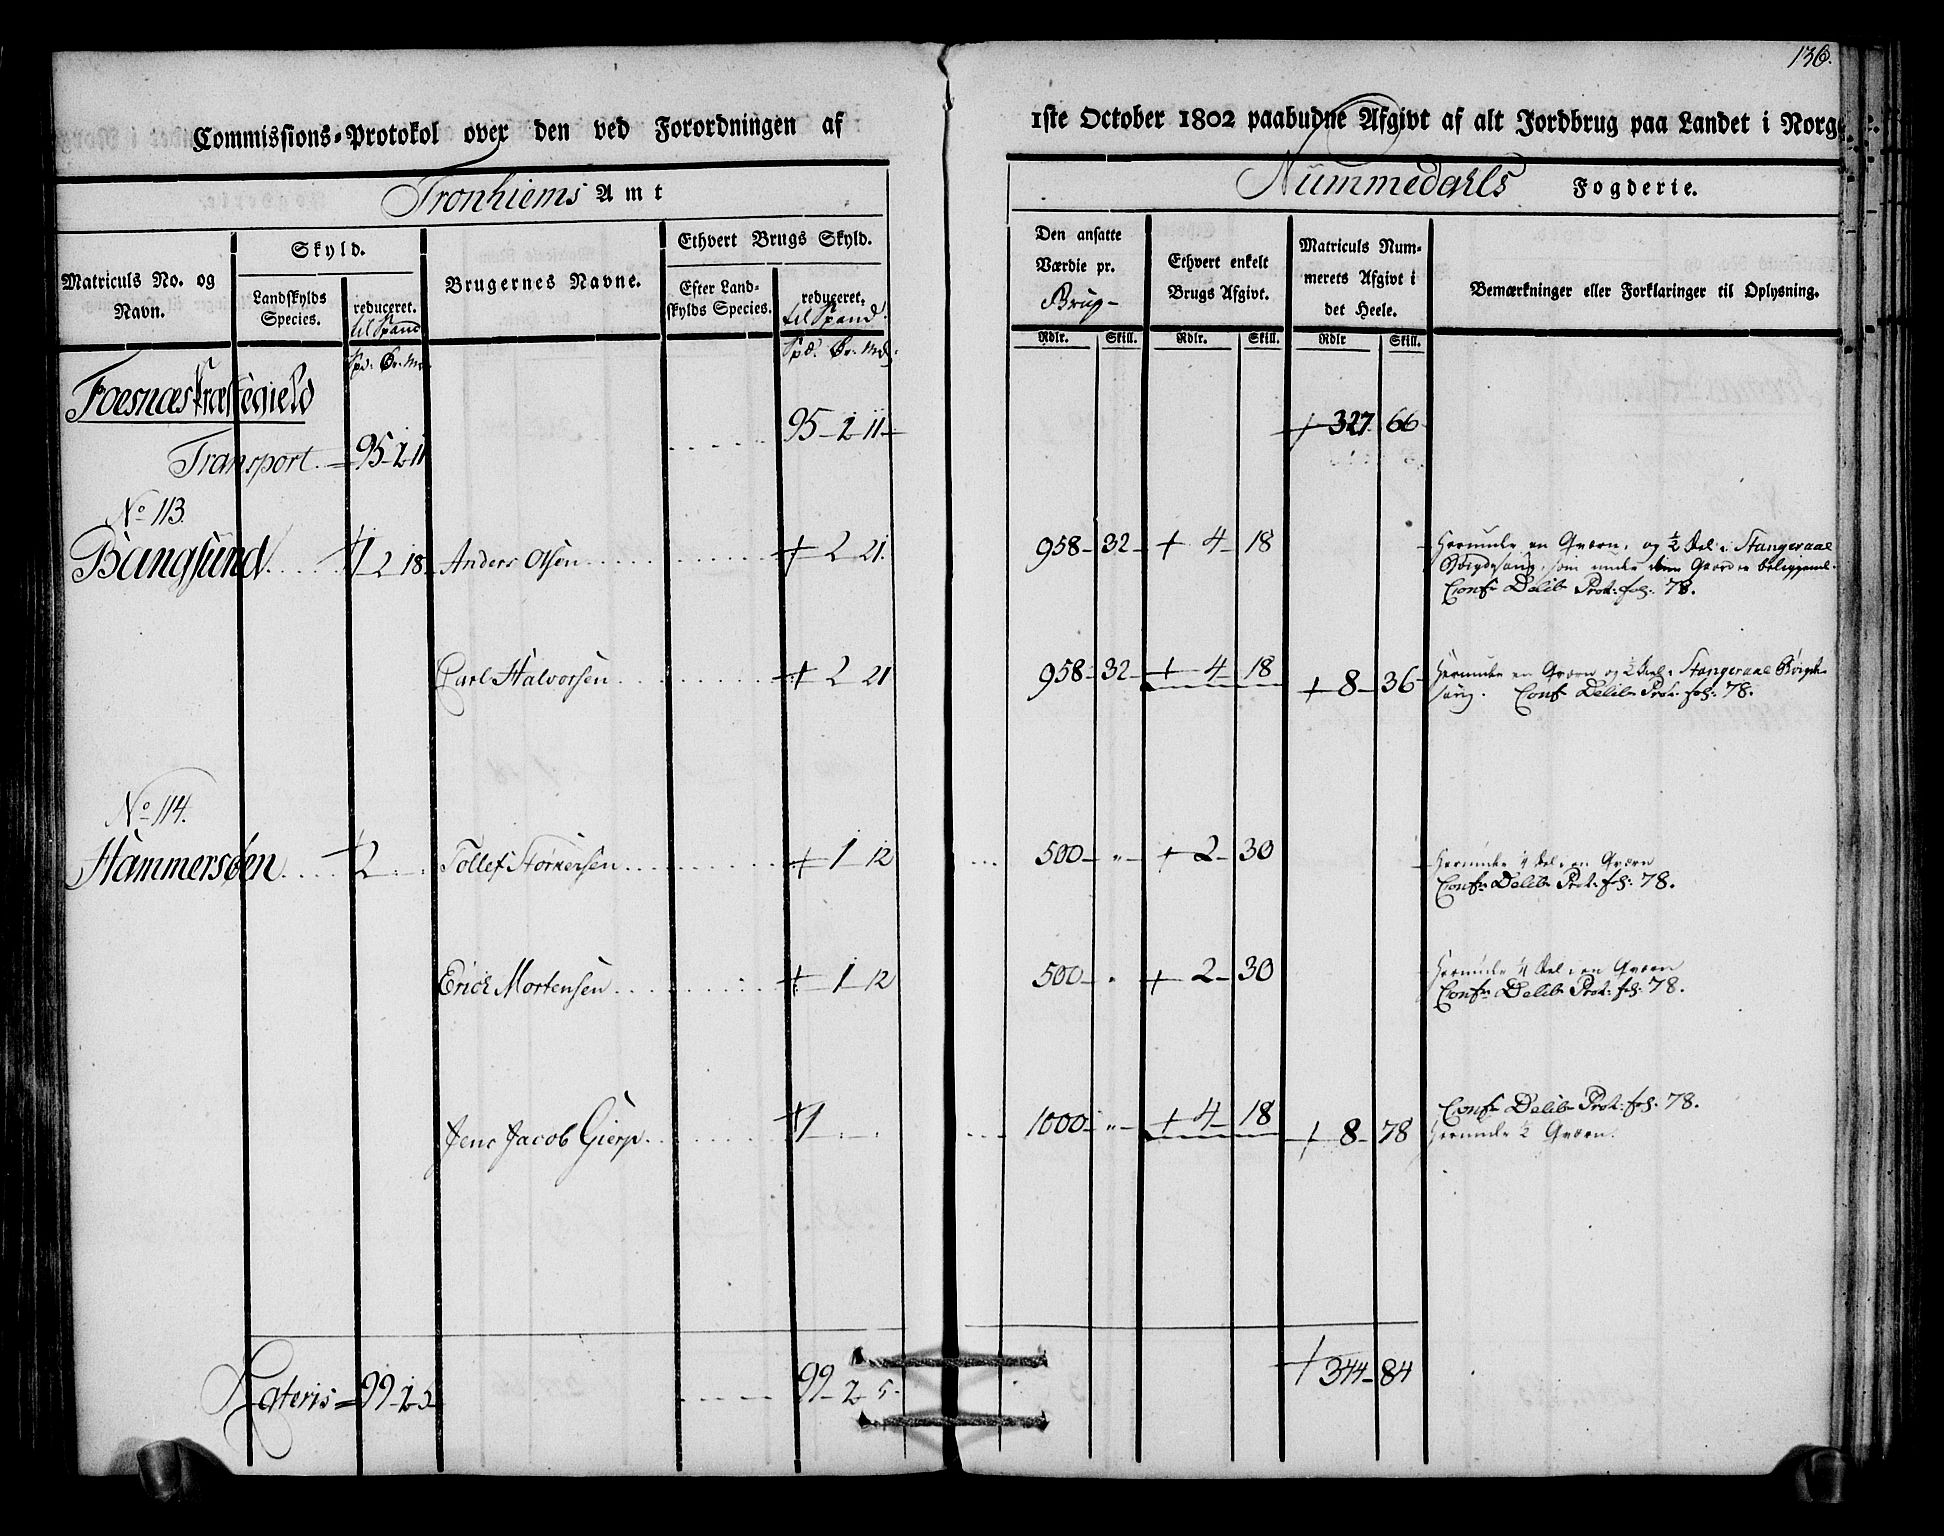 136.
Commissions-Protokol over den ved Forordningen af
1ste October 1802 paabudne Afgivt af alt Jordbrug paa Landet i Norge
Tronhiems Amt
Nummedahls Fogderie.
Matriculs No. og Navn.
Skyld.
Landskylds Species.
reduceret. til Spand
Brugernes Navne.
Ethvert Brugs Skyld.
Efter Landskylds Species.
reduceret. til Spand.
Den ansatte Værdie pr. Brug-
Ethvert enkelt Brugs Afgivt.
Matriculs Nummerets Afgivt i det Heele.
Bemærkninger eller Forklaringer til Oplysning.
Spd: Ør: Mk:
Spd: Ør: Mk:
Rdlr. Skill. Rdlr. Skill. Rdlr Skill.
Foesnæs Præstegield
Transport. 95-2-11 95-2-11 327 66
No 113.
Bangsund 1 2 18 Anders Olsen 2 21. 958-32 4-18 Herunde en Qværn, og ½ Del i Stangeraae
Bøigdesaug, som under Gaarden beliggende.
Conf: Delib Prot: fol: 78.
Carl Halvorsen 2 21 958-32 4-18 8-36 Herunde en Qværn og ½ Del i Stangeraae Bøigde
saug. Conf Delib Prot: fol: 78.
No 114.
Hammersøen 2 Tollef Størkersen 1 12 500-"- 2-30 Herunde ¼ Del i en Qværn
Conf: Delib Prot: fol: 78.
Erich Mortensen 1 12 500-" 2-30 Herunde ¼ Del i en Qværn
Conf: Delib Prot: fol: 78.
Jens Jacob Gierp 1 1000-"- 4-18 8-78 Conf: Delib Prot: fol: 78.
Herunde ½ Qværn.
Lateris 99-2-5 99-2 5- 344-84